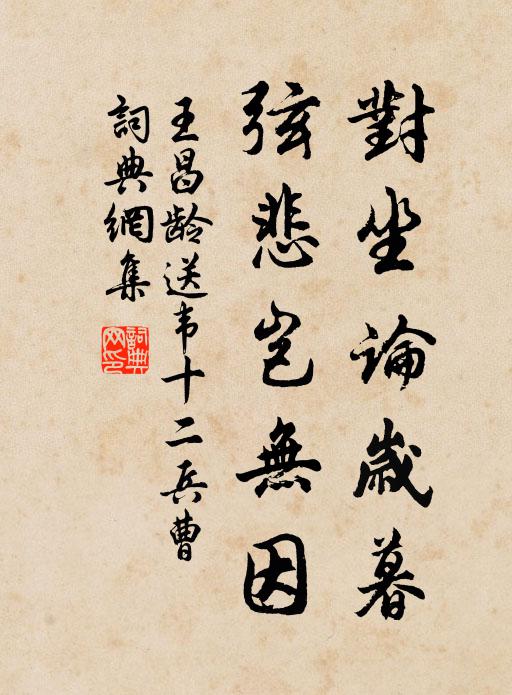 對坐論歲暮
弦悲豈無因
王昌齡送韦十二兵曹
詞典網集
詞典网印